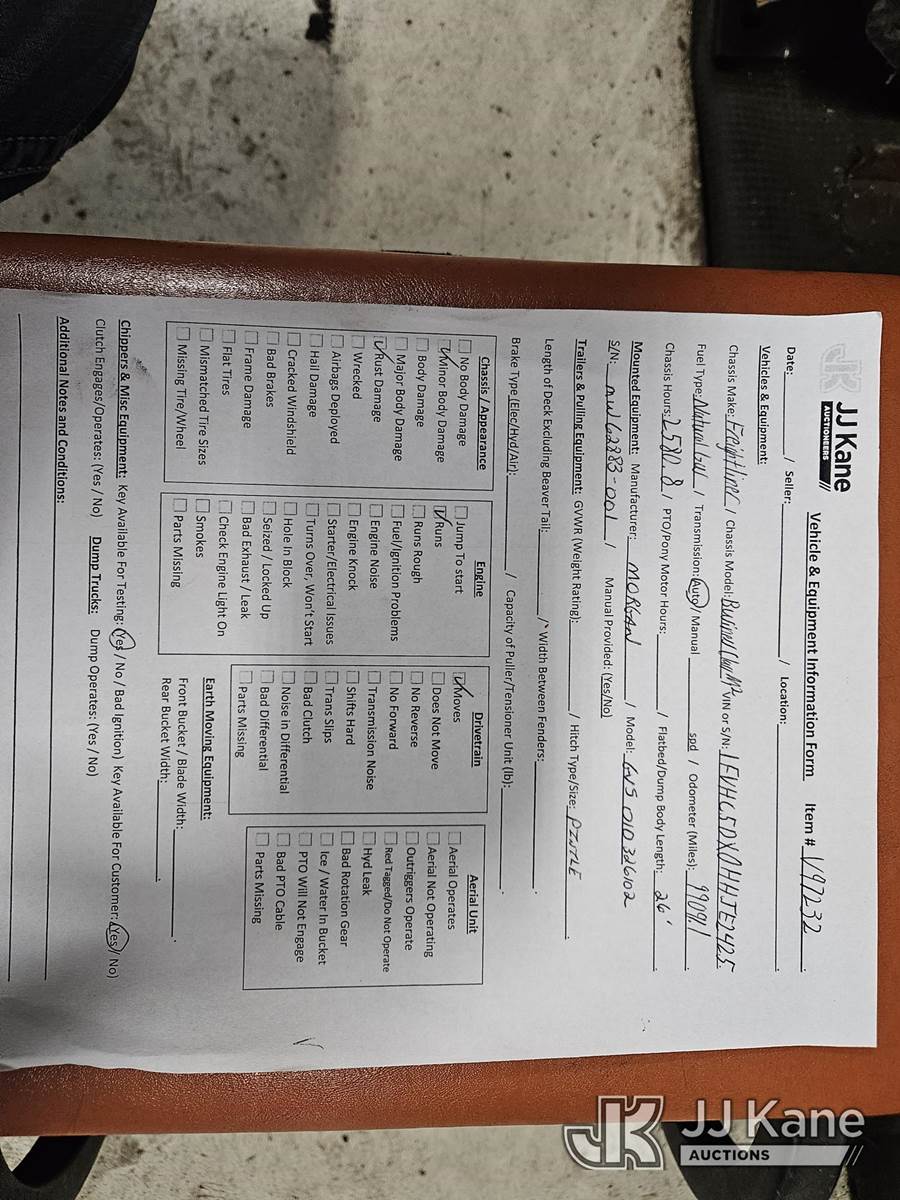 JJ Kane
AUCTIONEERS
Vehicle & Equipment Information Form Item # 1497232.
Date: / Seller: / Location: .
Vehicles & Equipment:
Chassis Make: Freightliner / Chassis Model: Business Class M2 VIN or S/N: 1FVHC5DX0HHJE2425.
Fuel Type: Natural Gas / Transmission: Auto / Manual spd / Odometer (Miles): 99091.
Chassis Hours: 2580.8 / PTO/Pony Motor Hours: / Flatbed/Dump Body Length: 26'.
Mounted Equipment: Manufacturer: MORGAN / Model: GVS010326102
S/N: 62883-001 / Manual Provided: (Yes/No)
Trailers & Pulling Equipment: GVWR (Weight Rating): / Hitch Type/Size: PINTLE .
Length of Deck Excluding Beaver Tail: / Width Between Fenders: .
Brake Type (Elec/Hyd/Air): / Capacity of Puller/Tensioner Unit (lb): .
Chassis / Appearance
No Body Damage
✓ Minor Body Damage
Body Damage
Major Body Damage
✓ Rust Damage
Wrecked
Airbags Deployed
Hail Damage
Cracked Windshield
Bad Brakes
Frame Damage
Flat Tires
Mismatched Tire Sizes
Missing Tire/Wheel
Engine
Jump To start
✓ Runs
Runs Rough
Fuel/Ignition Problems
Engine Noise
Engine Knock
Starter/Electrical Issues
Turns Over, Won't Start
Hole In Block
Seized / Locked Up
Bad Exhaust / Leak
Check Engine Light On
Smokes
Parts Missing
Drivetrain
✓ Moves
Does Not Move
No Reverse
No Forward
Transmission Noise
Shifts Hard
Trans Slips
Bad Clutch
Noise In Differential
Bad Differential
Parts Missing
Aerial Unit
Aerial Operates
Aerial Not Operating
Outriggers Operate
Red Tagged/Do Not Operate
Hyd Leak
Bad Rotation Gear
Ice / Water In Bucket
PTO Will Not Engage
Bad PTO Cable
Parts Missing
Earth Moving Equipment:
Front Bucket / Blade Width: .
Rear Bucket Width: .
Chippers & Misc Equipment: Key Available For Testing: (Yes / No / Bad Ignition) Key Available For Customer: (Yes / No)
Clutch Engages/Operates: (Yes / No) Dump Trucks: Dump Operates: (Yes / No)
Additional Notes and Conditions:
JK JJ Kane
AUCTIONS